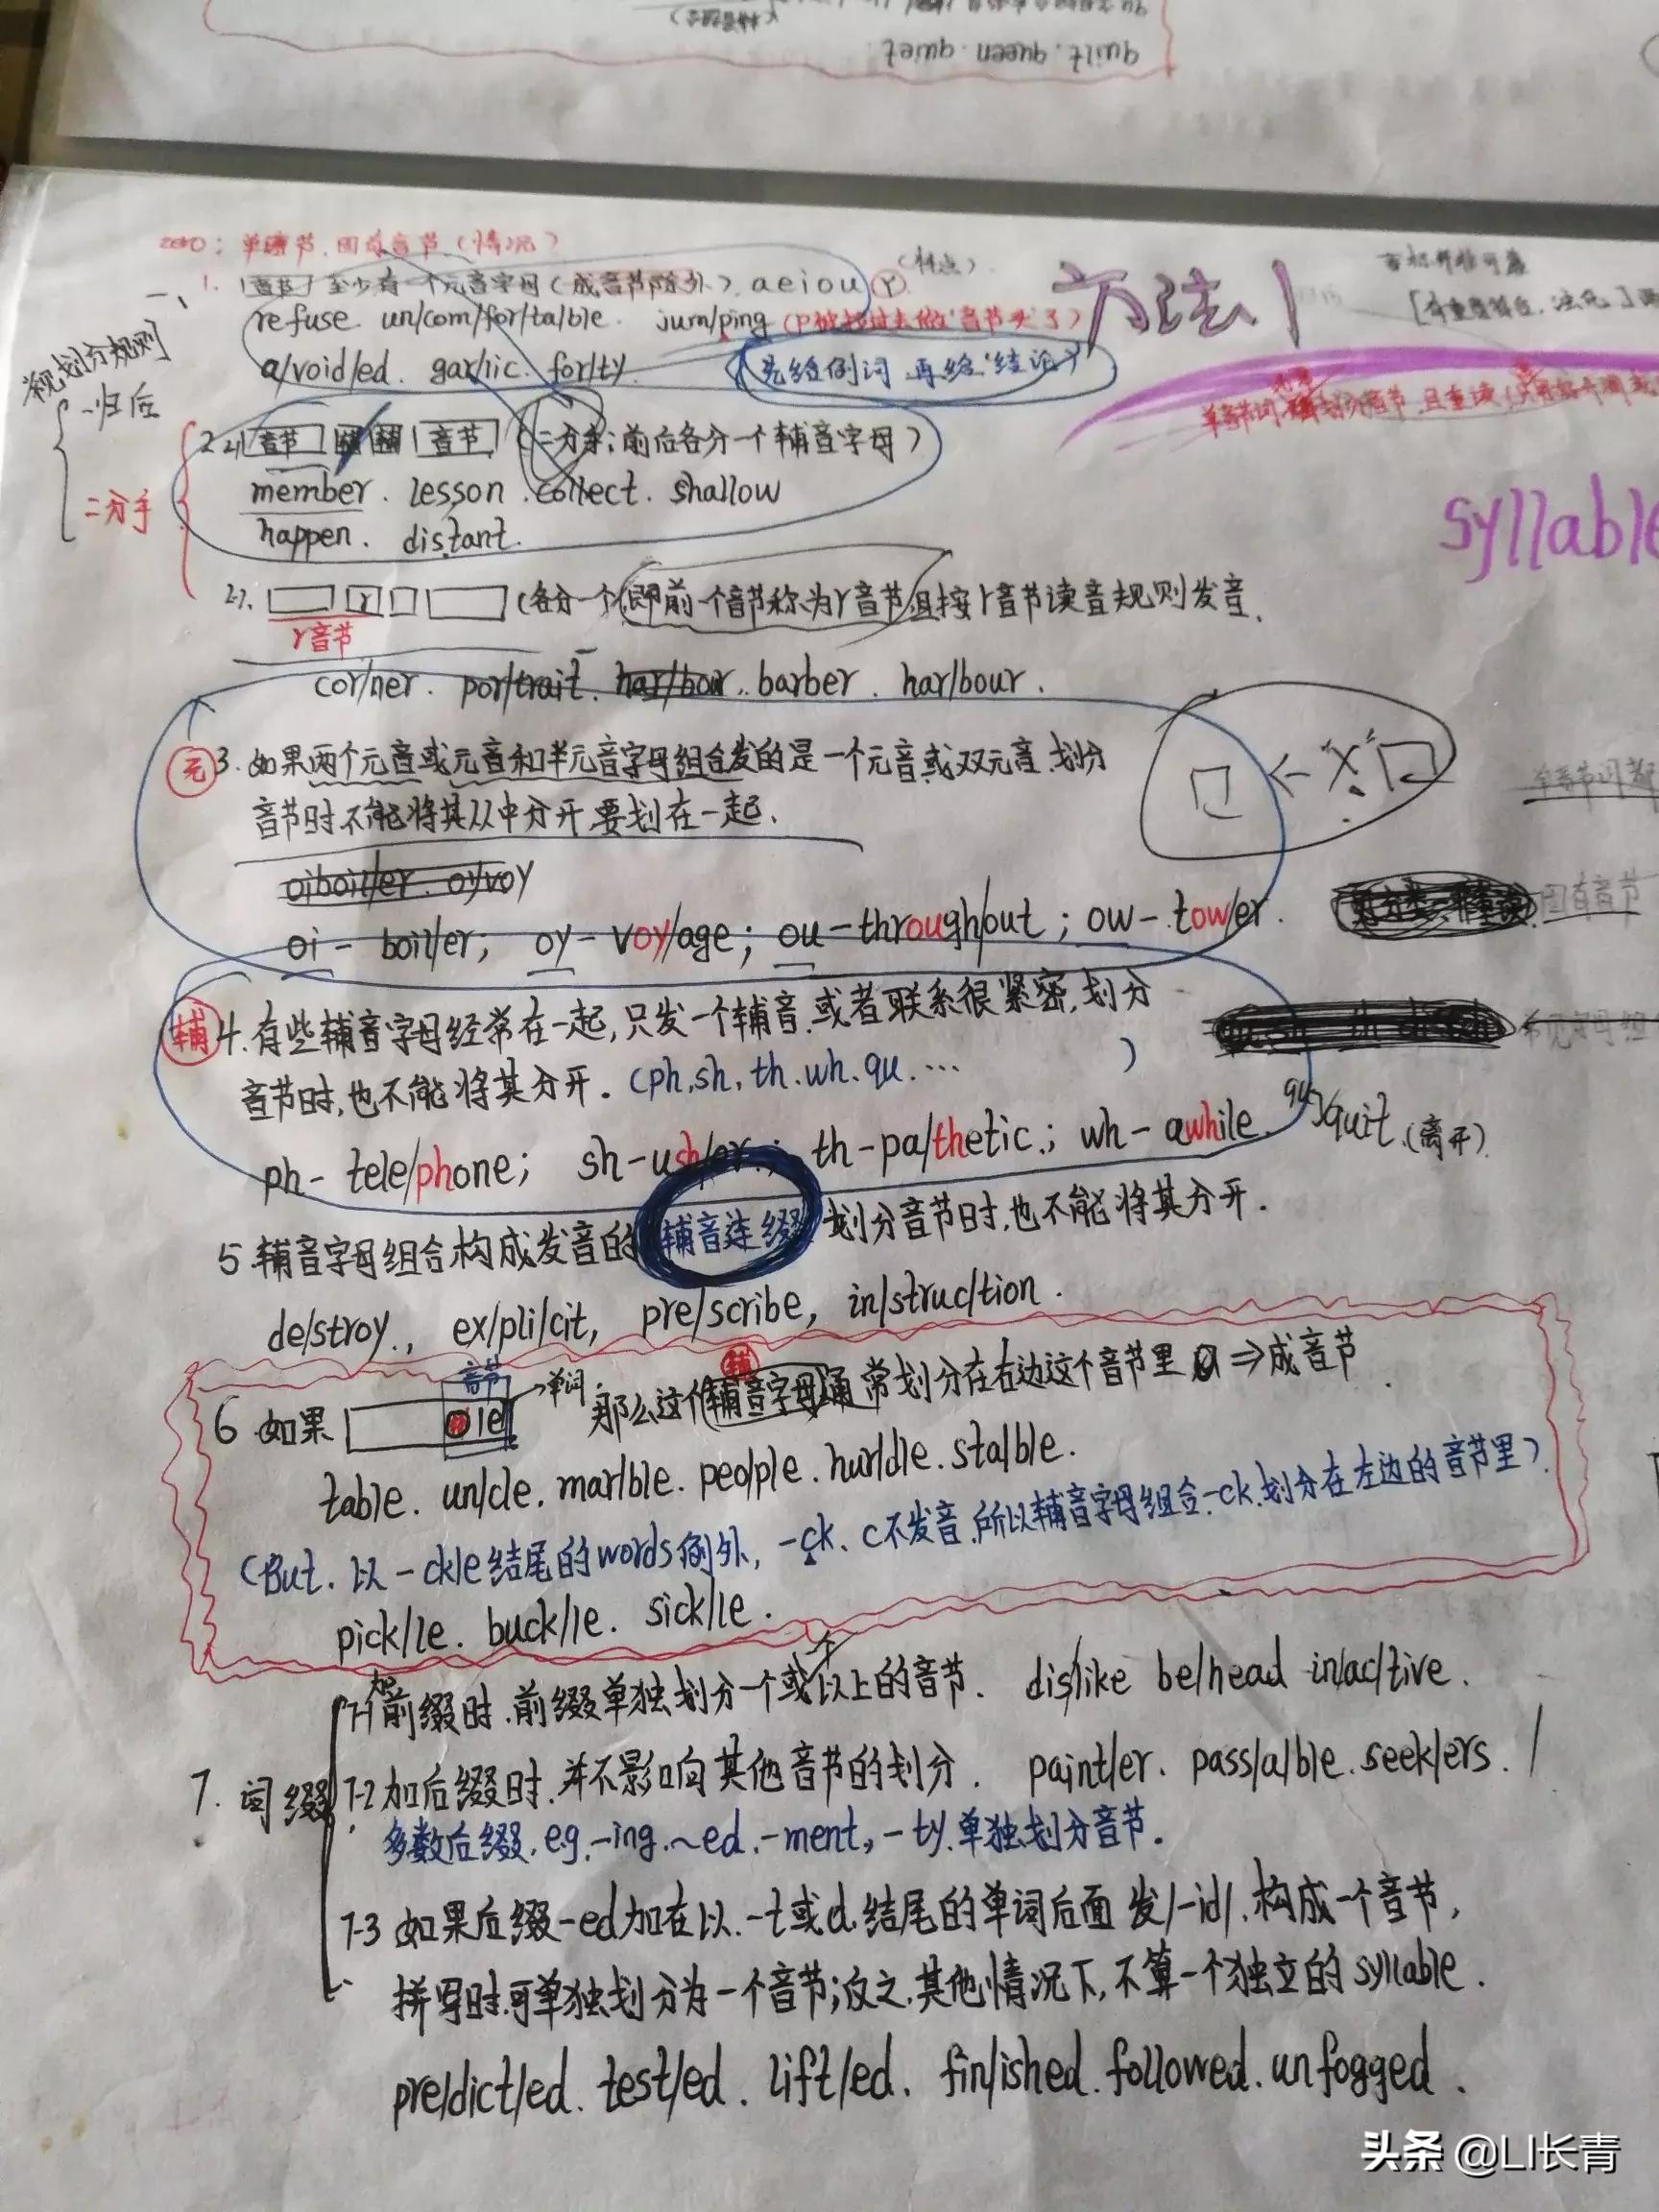 quilt. queen. quiet
zero: 单音节.固有音节.(情况)
1. 音节 至少有一个元音字母(成音节除外). aeiou Y (特点)
refuse. un/com/for/ta/ble. jum/ping
方法1
a/void/ed. gar/lic. for/ty.
先给例词 再给'结论'
划分规则
一归后
二分手
2. 音节 辅 辅 音节 (二分手:前后各分一个辅音字母)
member. lesson. collect. shallow
happen. distant.
syllable
r (各分一个,即前一个音节称为r音节,且按r音节读音规则发音.
r音节
cor/ner. por/trait. har/bour. barber. har/bour.
元 3. 如果两个元音或元音和半元音字母组合发的是一个元音或双元音.划分
音节时不能将其从中分开,要划在一起.
←"X"
oi boil/er. oy voy
固有音节
oi - boil/er; oy - voy/age; ou - through/out; ow - tow/er.
辅 4. 有些辅音字母经常在一起,只发一个辅音.或者联系很紧密,划分
音节时,也不能将其分开。(ph, sh, th. wh. qu. … )
ph- tele/phone; sh-ush/er.; th-pa/thetic.; wh- awhile. qu quit.(离开)
5. 辅音字母组合构成发音的辅音连缀 划分音节时,也不能将其分开.
de/stroy., ex/pli/cit, pre/scribe, in/struc/tion.
音节
6. 如果 le →单词. 那么这个辅音字母通常划分在右边这个音节里 ⇒成音节
table. un/cle. mar/ble. peo/ple. hur/dle. sta/ble.
(But. 以 -ckle结尾的words例外, -ck、c不发音.所以辅音字母组合-ck.划分在左边的音节里).
pick/le. buck/le. sick/le.
7. 词缀
7-1 加前缀时.前缀单独划分一个或以上的音节. dis/like be/head in/ac/tive.
7-2 加后缀时.并不影响其他音节的划分. paint/er. pass/a/ble. seek/ers.
多数后缀. e.g. -ing. ~ed. -ment, -ty.单独划分音节.
7-3 如果后缀-ed加在以.-t或d.结尾的单词后面 发/-id/.构成一个音节,
拼写时.可单独划分为一个音节;反之.其他情况下,不算一个独立的syllable.
pre/dict/ed. test/ed. lift/ed. fin/ished. followed. unfogged.
头条 @LI长青